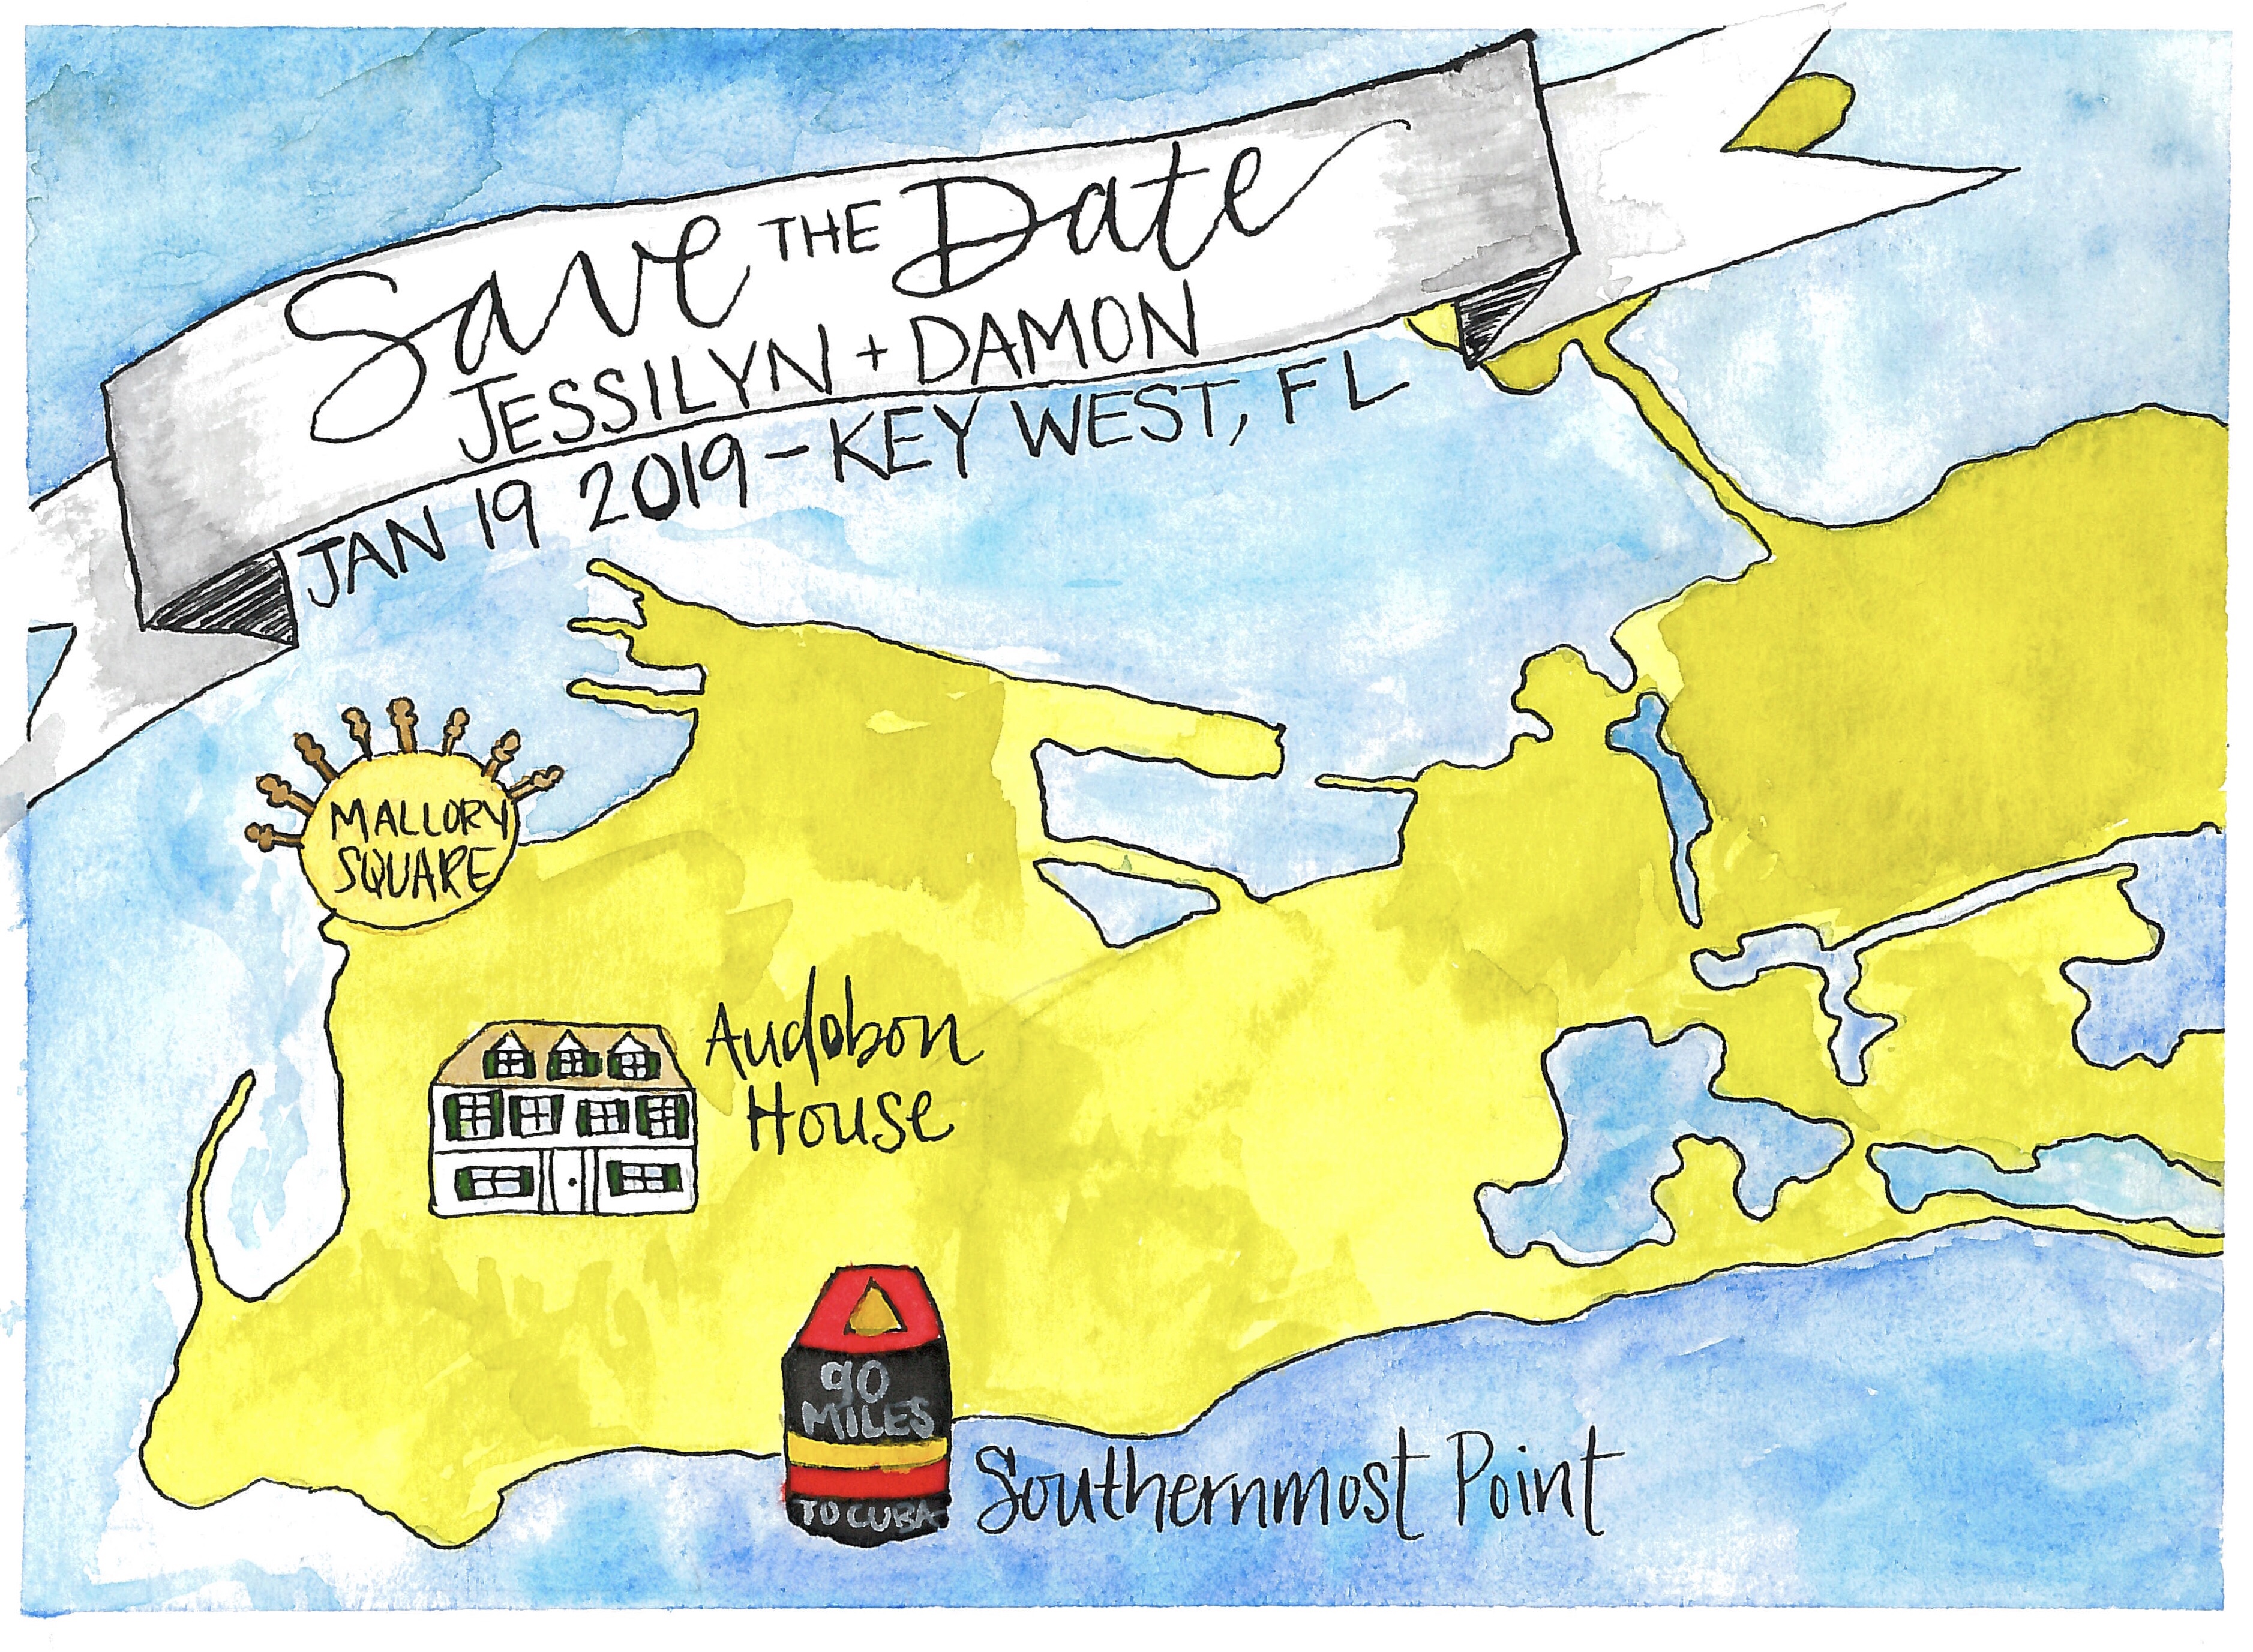 Save THE Date
JESSILYN + DAMON
JAN 19 2019 - KEY WEST, FL
MALLORY
SQUARE
Audobon
House
90
MILES
TO CUBA
Southernmost Point